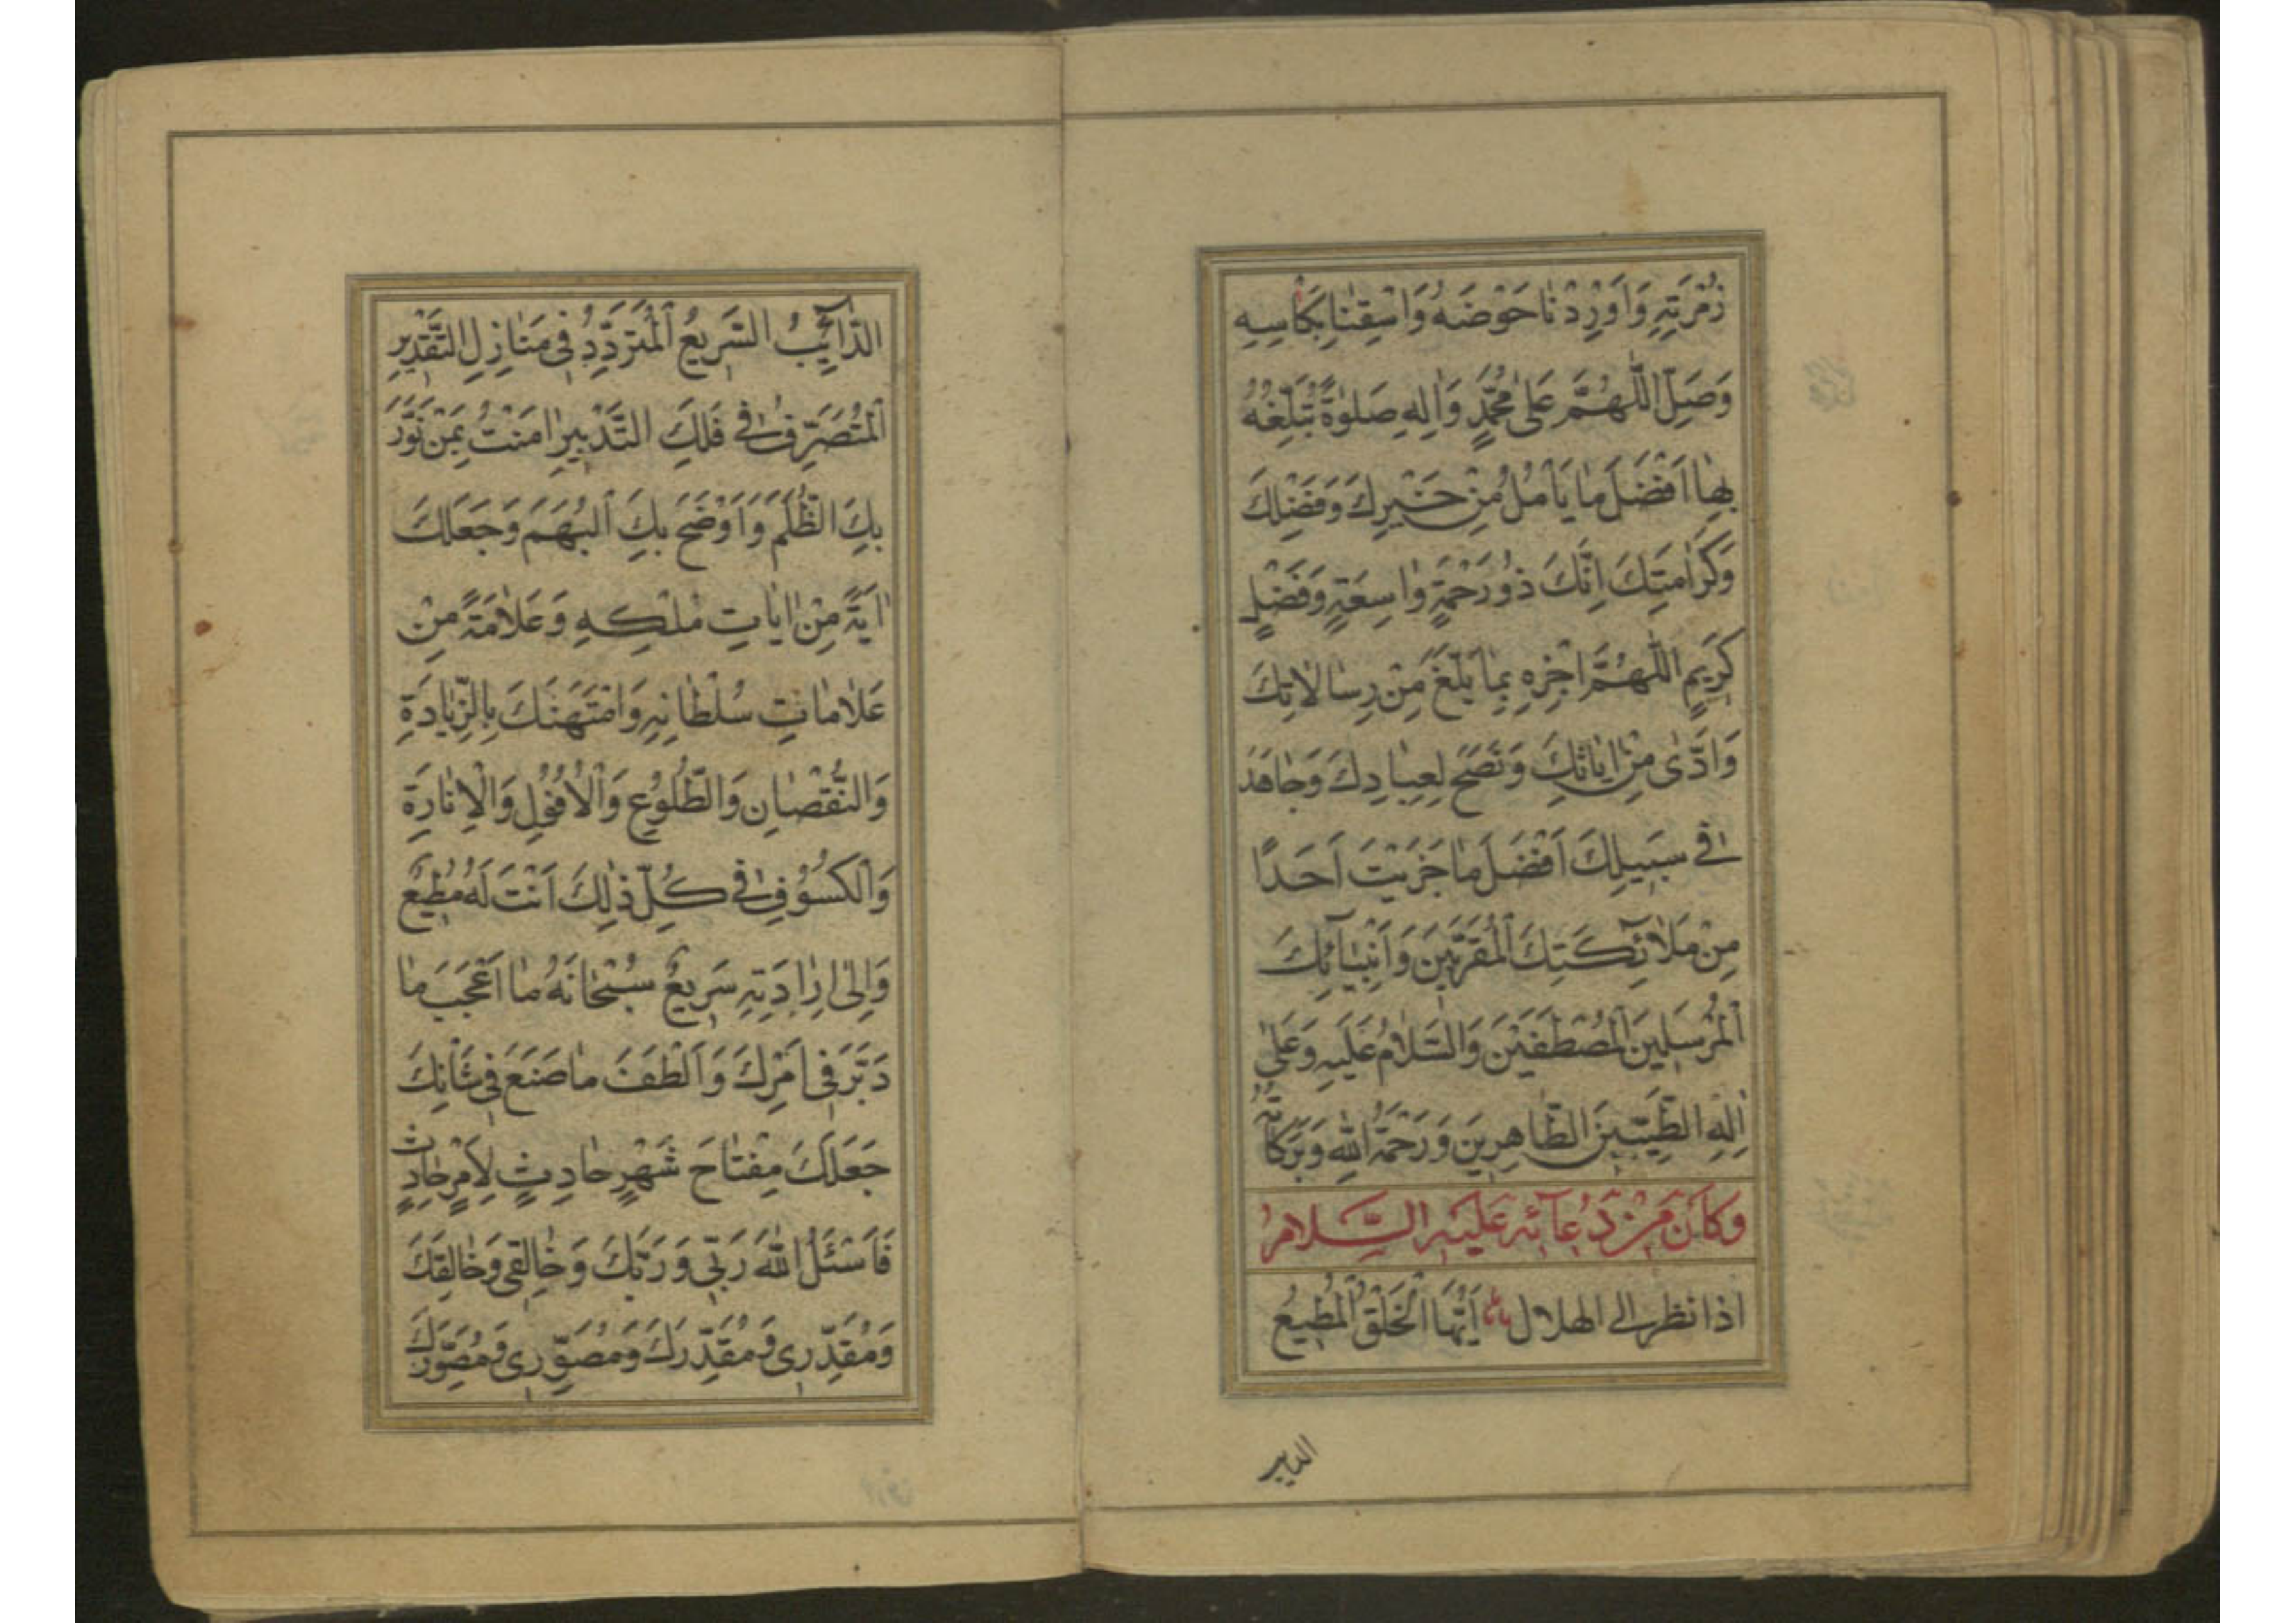 زُمْرَتِهِ وَاَوْرِدْنٰا حَوْضَهُ وَاسْقِنٰا بِكَاْسِهِ
وَصَلِّ اللّٰهُمَّ عَلىٰ مُحَمَّدٍ وَاٰلِهِ صَلوٰةً تُبَلِّغُهُ
بِهٰا اَفْضَلَ مٰا يَاْمُلُ مِنْ خَيْرِكَ وَفَضْلِكَ
وَكَرٰامَتِكَ اِنَّكَ ذُو رَحْمَةٍ وٰاسِعَةٍ وَفَضْلٍ
كَرِيمٍ اللّٰهُمَّ اجْزِهِ بِمٰا بَلَّغَ مِنْ رِسٰالاٰتِكَ
وَاَدّٰى مِنْ اٰيٰاتِكَ وَنَصَحَ لِعِبٰادِكَ وَجٰاهَدَ
فٖي سَبِيلِكَ اَفْضَلَ مٰا جَزَيْتَ اَحَدًا
مِنْ مَلاٰئِكَتِكَ الْمُقَرَّبِينَ وَاَنْبِيٰآئِكَ
الْمُرْسَلِينَ الْمُصْطَفَيْنَ وَالسَّلاٰمُ عَلَيْهِ وَعَلىٰ
اٰلِهِ الطَّيِّبِينَ الطّٰاهِرِينَ وَرَحْمَةُ اللّٰهِ وَبَرَكٰاتُهُ
وَكَانَ مِنْ دُعَآئِهِ عَلَيْهِ السَّلَامُ
اذا نظر الى الهلال اَيُّهَا الْخَلْقُ الْمُطِيعُ
الدایب
الدّٰآئِبُ السَّرِيعُ الْمُتَرَدِّدُ فِي مَنٰازِلِ التَّقْدِيرِ
الْمُتَصَرِّفُ فٖي فَلَكِ التَّدْبِيرِ اٰمَنْتُ بِمَنْ نَوَّرَ
بِكَ الظُّلَمَ وَاَوْضَحَ بِكَ الْبُهَمَ وَجَعَلَكَ
اٰيَةً مِنْ اٰيٰاتِ مُلْكِهِ وَعَلاٰمَةً مِنْ
عَلاٰمٰاتِ سُلْطٰانِهِ وَامْتَهَنَكَ بِالزِّيٰادَةِ
وَالنُّقْصٰانِ وَالطُّلُوعِ وَالْاُفُولِ وَالْاِنٰارَةِ
وَالْكُسُوفِ فٖي كُلِّ ذٰلِكَ اَنْتَ لَهُ مُطِيعٌ
وَاِلىٰ اِرٰادَتِهِ سَرِيعٌ سُبْحٰانَهُ مٰا اَعْجَبَ مٰا
دَبَّرَ فِي اَمْرِكَ وَاَلْطَفَ مٰا صَنَعَ فِي شَأْنِكَ
جَعَلَكَ مِفْتٰاحَ شَهْرٍ حٰادِثٍ لِاَمْرٍ حٰادِثٍ
فَاَسْئَلُ اللّٰهَ رَبِّي وَرَبَّكَ وَخٰالِقِي وَخٰالِقَكَ
وَمُقَدِّرِي وَمُقَدِّرَكَ وَمُصَوِّرِي وَمُصَوِّرَكَ